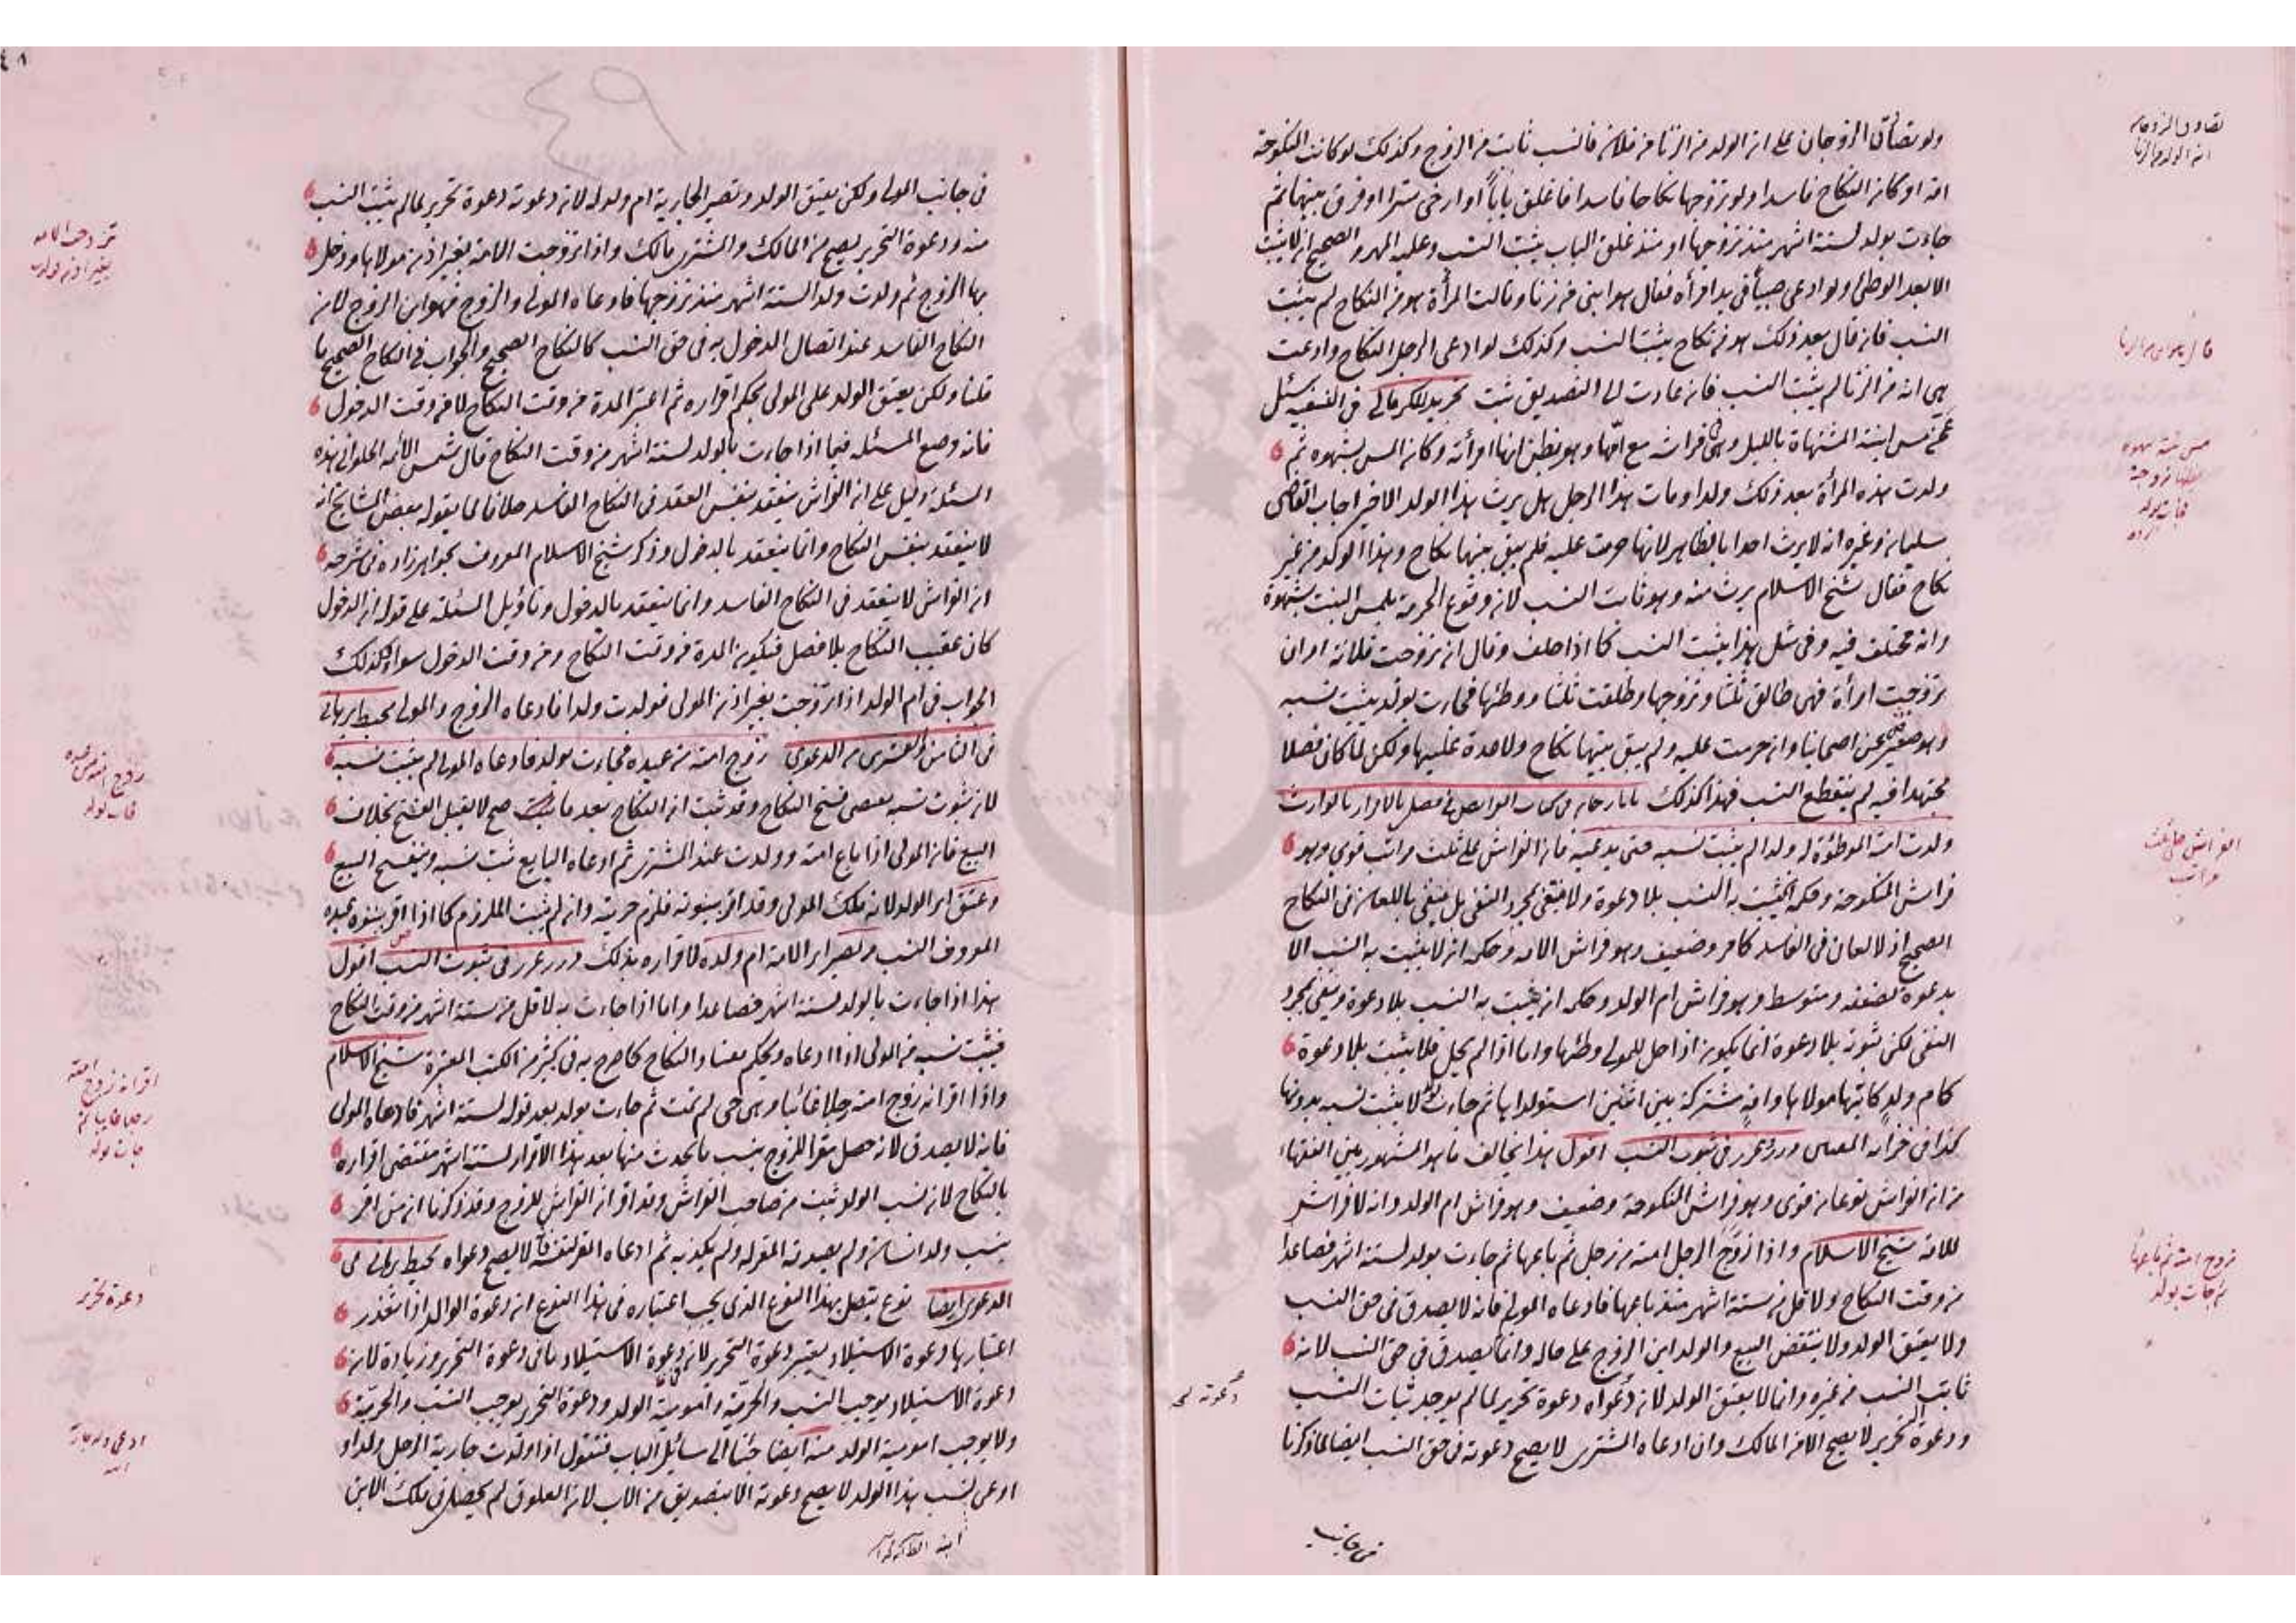 ولو تصادق الزوجان على ان الولد من الزنا من فلان فالنسب ثابت من الزوج وكذلك لو كانت المنكوحة
امة او كان النكاح فاسدا ولو تزوجها نكاحا فاسدا فاغلق بابا او ارخى سترا او فرق بينهما ثم
جاءت بولد لستة اشهر منذ تزوجها او منذ غلق الباب يثبت النسب وعليه المهر والصحيح انه لا يثبت
الا بعد الوطئ ولو ادعى صبيا في يد امرأة فقال هو ابني من زنا وقالت المرأة هو من النكاح لم يثبت
النسب فان قال بعد ذلك هو من نكاح يثبت النسب وكذلك لو ادعى الرجل النكاح وادعت
هي انه من الزنا لم يثبت النسب فان عادت الى التصديق ثبت سئل
عمن مس ابنته المشتهاة بالليل وهي في فراشه مع امها وهو يظن انها امرأته وكان المس بشهوة ثم
ولدت هذه المرأة بعد ذلك ولدا ومات هذا الرجل هل يرث هذا الولد الاخير اجاب القاضي
سليمان وغيره انه لا يرث احدا بالظاهر لانها حرمت عليه فلم يبق بينهما نكاح وهذا الولد من غير
نكاح فقال شيخ الاسلام يرث منه وهو ثابت النسب لان وقوع الحرمة بلمس البنت بشهوة
وانه مختلف فيه وفي مثل هذا يثبت النسب كما اذا حلف وقال ان تزوجت فلانة او ان
تزوجت امرأة فهي طالق ثلثا وتزوجها وطلقت ثلثا ووطئها فجاءت بولد يثبت نسبه
وهو صحيح عن اصحابنا وان حرمت عليه ولم يبق بينهما نكاح ولا عدة عليها ولكن لما كان فصلا
مجتهدا فيه لم ينقطع النسب فهذا كذلك
ولدت امته الموطوءة له ولدا لم يثبت نسبه حتى يدعيه فان الفراش على ثلث مراتب قوي وهو
فراش المنكوحة وحكمه ان يثبت به النسب بلا دعوة ولا ينتفي بمجرد النفي بل ينتفي باللعان في النكاح
الصحيح اذ لا لعان في الفاسد كما مر وضعيف وهو فراش الامة وحكمه انه لا يثبت به النسب الا
بدعوة لضعفه ومتوسط وهو فراش ام الولد وحكمه انه يثبت به النسب بلا دعوة وينتفي بمجرد
النفي لكن ثبوته بلا دعوة انما يكون اذا حل للمولى وطئها واما اذا لم يحل فلا يثبت بلا دعوة
كام ولد كاتبها مولاها وامة مشتركة بين اثنين استولداها ثم جاءت بولد لا يثبت نسبه بدونها
كذا في خزانة المفتين درر غرر في ثبوت النسب اقول هذا يخالف ما هو المشهور بين الفقهاء
من ان الفراش نوعان قوي وهو فراش المنكوحة وضعيف وهو فراش ام الولد وانه لا فراش
للامة شيخ الاسلام واذا زوج الرجل امته من رجل ثم باعها ثم جاءت بولد لستة اشهر فصاعدا
من وقت النكاح ولاقل من ستة اشهر منذ باعها فادعاه المولى فانه لا يصدق في حق النسب
ولا يعتق الولد ولا ينتقض البيع والولد ابن الزوج على حاله وانما يصدق في حق النسب لانه
ثابت النسب من غيره وانما لا يعتق الولد لان دعواه دعوة تحرير لما لم يوجد ثبات النسب
ودعوة التحرير لا يصح الا من المالك وان ادعاه المشتري لا يصح دعوته في حق النسب ايضا لما ذكرنا
من جانب
في جانب المولى ولكن يعتق الولد وتصير الجارية ام ولد له لان دعوته دعوة تحرير لما لم يثبت النسب
منه ودعوة التحرير يصح من المالك والمشتري مالك واذا تزوجت الامة بغير اذن مولاها ودخل
بها الزوج ثم ولدت ولدا لستة اشهر منذ تزوجها فادعاه المولى والزوج فهو ابن الزوج لان
النكاح الفاسد عند اتصال الدخول به في حق النسب كالنكاح الصحيح والجواب في النكاح الصحيح ما
قلنا ولكن يعتق الولد على المولى بحكم اقراره ثم اعتبر المدة من وقت النكاح لا من وقت الدخول
فانه وضع المسئلة فيما اذا جاءت بالولد لستة اشهر من وقت النكاح قال شمس الائمة الحلواني هذه
المسئلة دليل على ان الفراش ينعقد بنفس العقد في النكاح الفاسد خلافا لما يقوله بعض المشايخ انه
لا ينعقد بنفس النكاح وانما ينعقد بالدخول وذكر شيخ الاسلام المعروف بخواهرزاده في شرحه
ان الفراش لا ينعقد في النكاح الفاسد وانما ينعقد بالدخول وتأويل المسئلة على قوله ان الدخول
كان عقيب النكاح بلا فصل فيكون المدة من وقت النكاح ومن وقت الدخول سواء وكذلك
الجواب في ام الولد اذا تزوجت بغير اذن المولى فولدت ولدا فادعاه الزوج والمولى محيط برهاني
في الثامن والعشرين من الدعوى زوج امته من عبده فجاءت بولد فادعاه المولى لم يثبت نسبه
لان ثبوت نسبه بعض فسخ النكاح وقد ثبت ان النكاح بعد ما صح لا يقبل الفسخ بخلاف
البيع فان المولى اذا باع امته وولدت عند المشتري ثم ادعاه البايع ثبت نسبه وينفسخ البيع
وعتق اي الولد لانه ملك المولى وقد اقر ببنوته فلزم حريته وان لم يثبت الملزوم كما اذا اقر ببنوة عبده
المعروف النسب وتصير اي الامة ام ولده لاقراره بذلك درر غرر في ثبوت النسب اقول
هذا اذا جاءت بالولد لستة اشهر فصاعدا واما اذا جاءت به لاقل من ستة اشهر من وقت النكاح
فيثبت نسبه من المولى اذا ادعاه ويحكم بفساد النكاح كما صرح به في كثير من الكتب المعتبرة شيخ الاسلام
واذا اقر انه زوج امته رجلا غائبا وهي حي لم تمت ثم جاءت بولد بعد قوله لستة اشهر فادعاه المولى
فانه لا يصدق لانه حصل مقرا للزوج بنسب ما يحدث منها بعد هذا الاقرار لستة اشهر مقتضى اقراره
بالنكاح لان نسب الولد يثبت من صاحب الفراش وقد اقر ان الفراش للزوج وقد ذكرنا ان من اقر
بنسب ولد انسان ولم يصدقه المقر له ولم يكذبه ثم ادعاه المقر لنفسه فانه لا يصح دعواه محيط برهاني من
الدعوى ايضا نوع يتصل بهذا النوع الذي يجب اعتباره في هذا النوع ان دعوة الوالد اذا تعذر
اعتبارها دعوة الاستيلاد يعتبر دعوة التحرير لان دعوة الاستيلاد ما في دعوة التحرير وزيادة لان
دعوة الاستيلاد يوجب النسب والحرية وامومية الولد ودعوة التحرير يوجب النسب والحرية
ولا يوجب امومية الولد منه ايضا جئنا الى مسائل الباب فنقول اذا ولدت جارية الرجل ولدا و
ادعى نسب هذا الولد لا يصح دعوته الا بتصديق من الاب لان العلوق لم يحصل في ملك الابن
دعوة تحرير